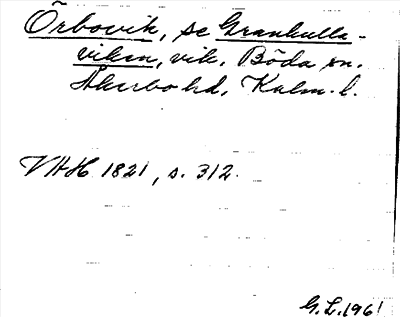 Örbovik, se Grankulla-
viken, vik, Böda sn.
Åkerbo hd, Kalm. l.
VAH 1821, s. 312.
G.L. 1961